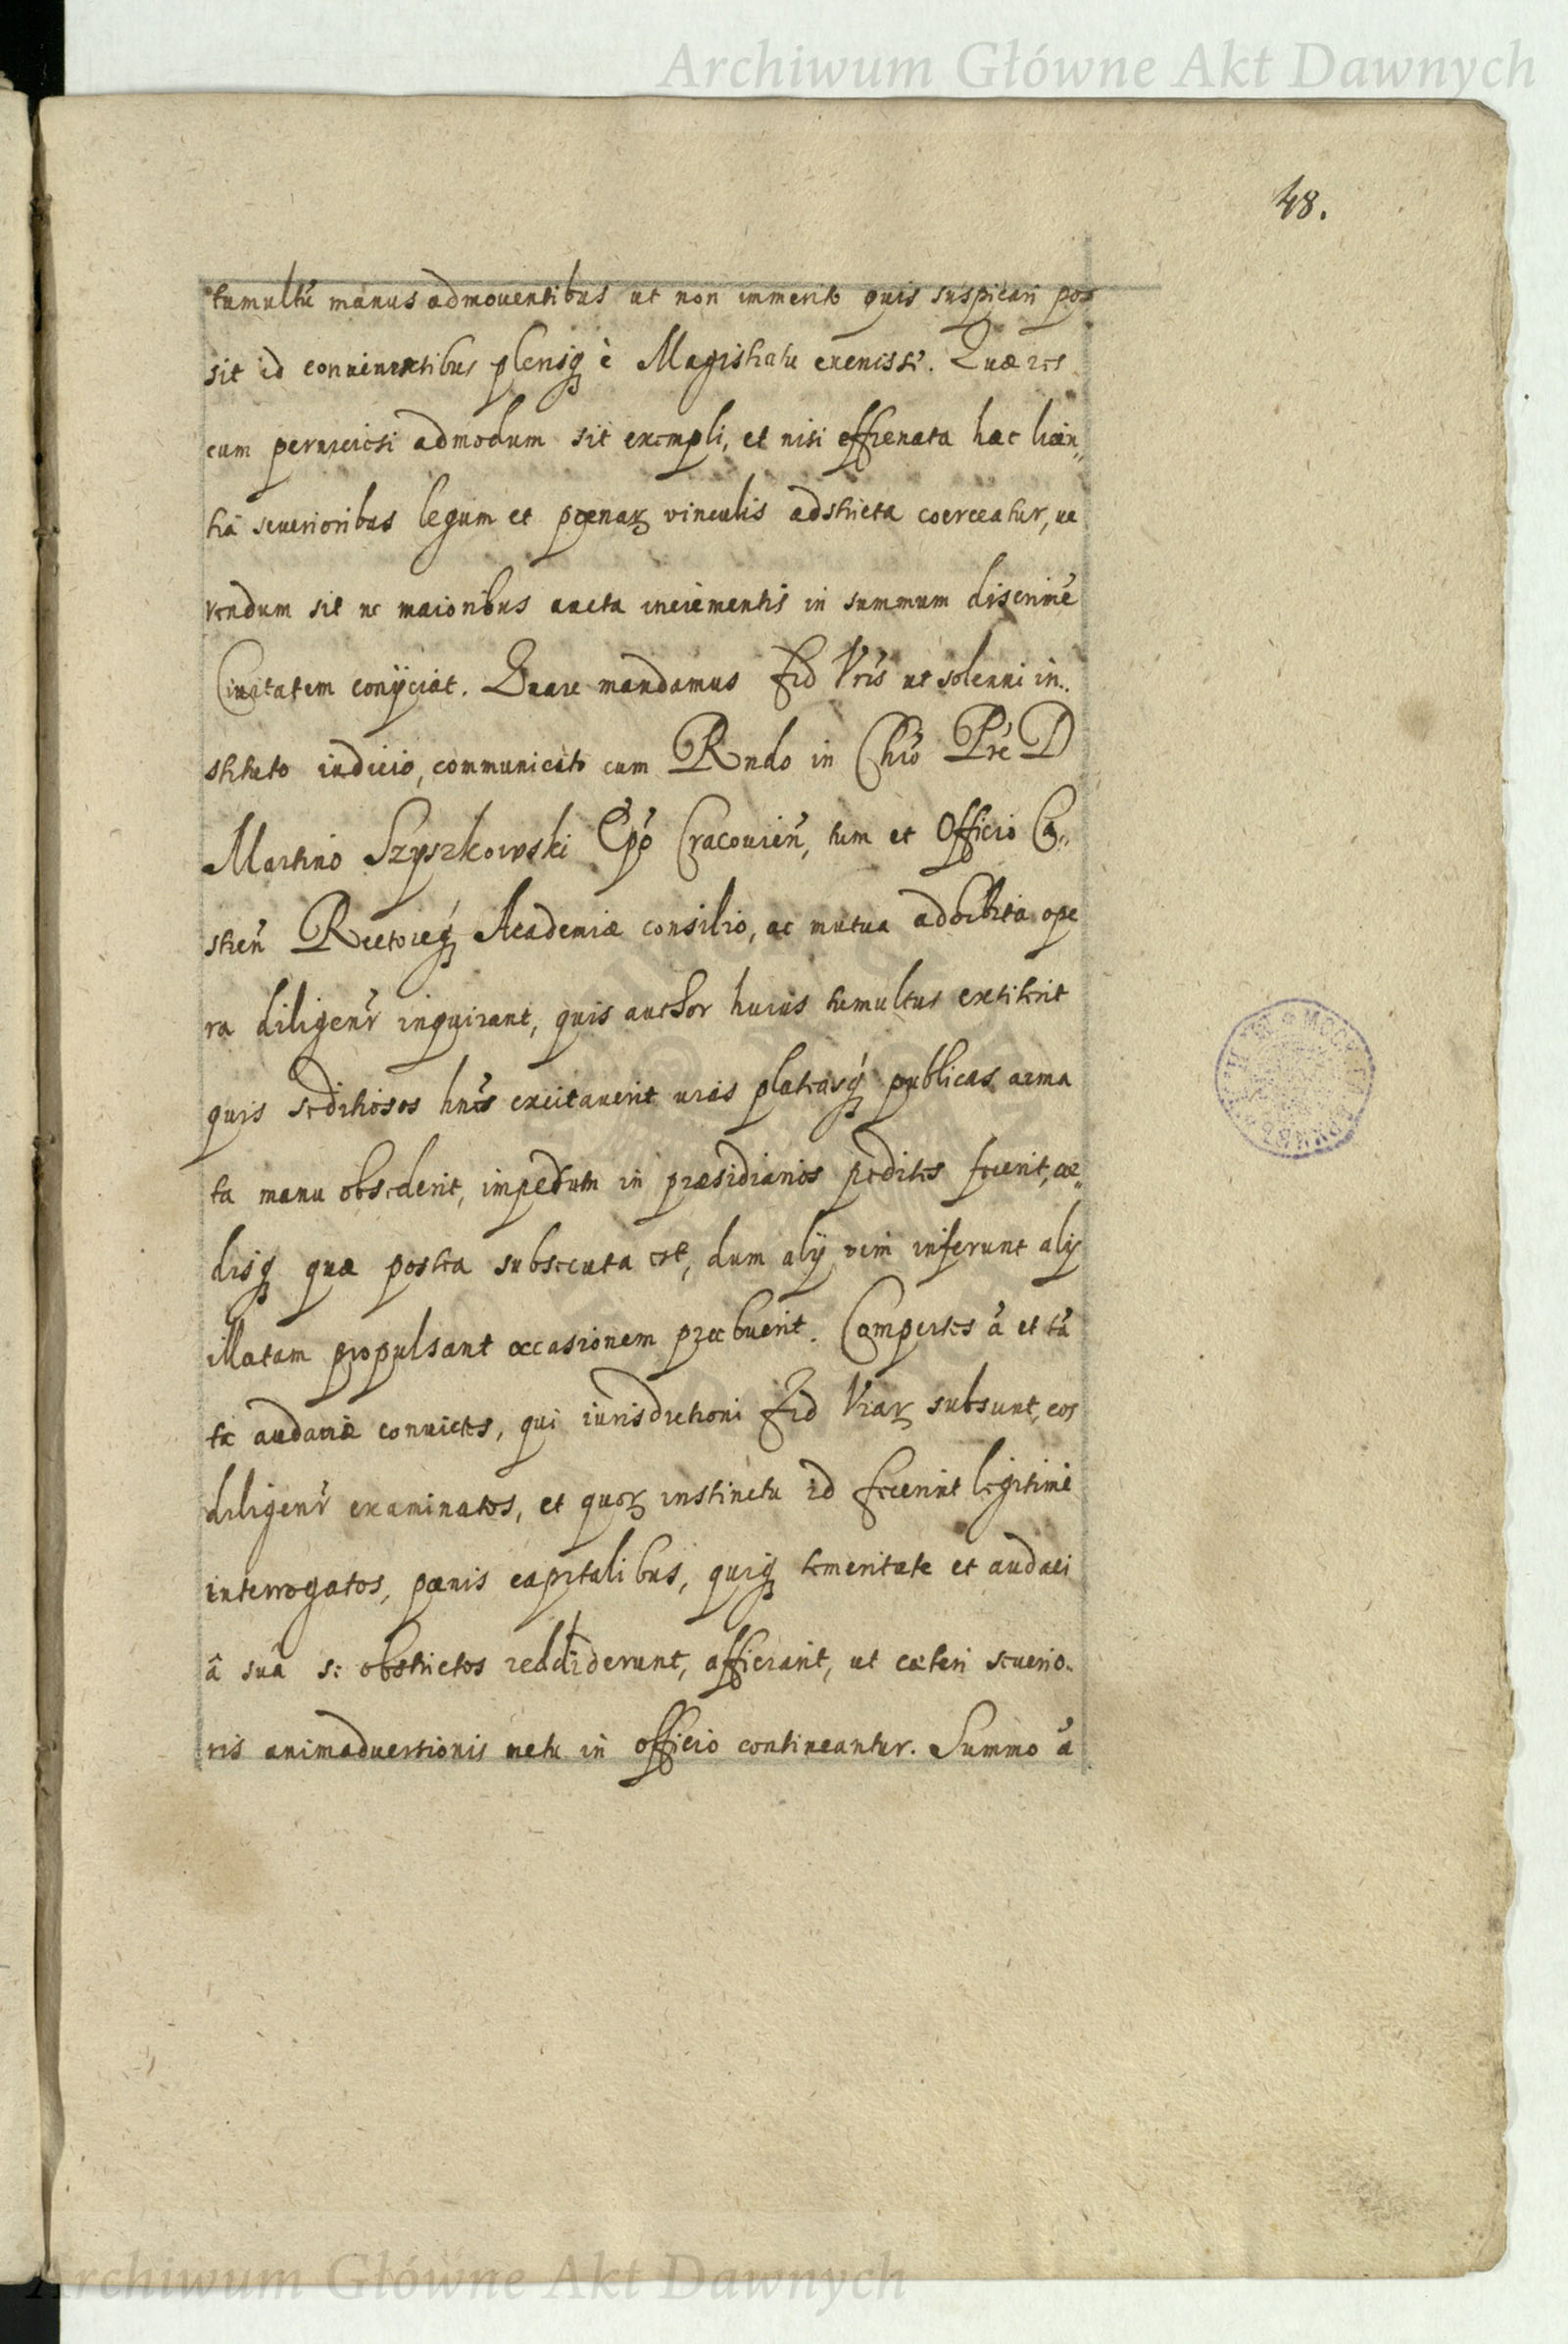 Archiwum Główne Akt Dawnych
48.
tumultũ manus admouentibus ut non immerito quis suspicari pos
sit id conniuentibus plerisq̃ è Magistratu euenisse. Quæ res
cum perniciosi admodum sit exempli, et nisi effrenata hæc licen„
tia seuerioribus legum et pœnaꝝ vinculis adstricta coerceatur, ue
rendum sit ne maioribus aucta incrementis in summum discrimẽ
Ciuitatem conÿciat. Quare mandamus Fid Vr̃is ut solenni in„
stituto iudicio, communicato cum Rndo in Chr̃o Pr̃e D
Martino Szyszkowski Ep̃o Cracouień, tum et Officio Ca„
streń Rectoreq̃ Academiæ consilio, ac mutua adhibita ope
ra diligenr̃ inquirant, quis author huius tumultus extiterit
quis seditiosos hñes excitauerit uias plateasq̃ publicas arma
ta manu obsederit, impetum in præsidiarios pedites fecerit, cæ„
disq̃ quæ postea subsecuta est, dum alÿ vim inferunt alÿ
illatam propulsant occasionem præbuerit. Compertos ã et tã
tæ audaciæ conuictos, qui iurisdictioni Fid Vraꝝ subsunt, eos
diligenr̃ examinatos, et quoꝝ instinctu id fecerint legitimè
interrogatos, pœnis capitalibus, quiq̃ temeritate et audaci
â suâ se obstrictos reddiderunt, afficiant, ut cæteri seuerio„
ris animaduersionis metu in officio contineantur. Summo ã
Archiwum Główne Akt Dawnych